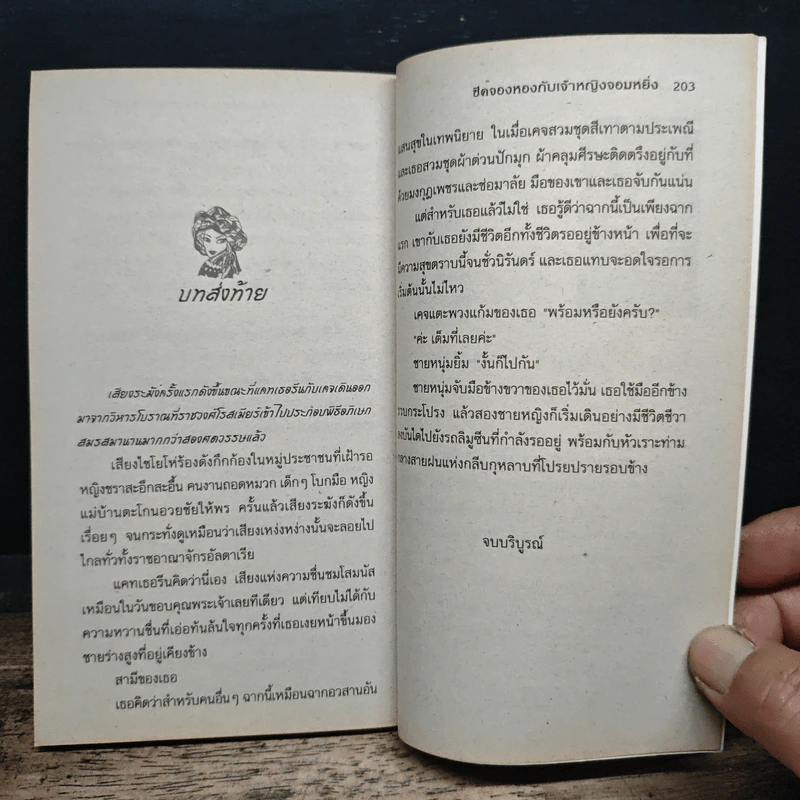 บทส่งท้าย
เสียงระฆังครั้งแรกดังขึ้นขณะที่แคทเธอรีนกับเคจเดินออก
มาจากวิหารโบราณที่ราชวงศ์โรสเมียร์เข้าไปประกอบพิธีอภิเษก
สมรสมานานมากกว่าสองศตวรรษแล้ว
เสียงไชโยโห่ร้องดังกึกก้องในหมู่ประชาชนที่เฝ้ารอ
หญิงชราสะอึกสะอื้น คนงานถอดหมวก เด็กๆ โบกมือ หญิง
แม่บ้านตะโกนอวยชัยให้พร ครั้นแล้วเสียงระฆังก็ดังขึ้น
เรื่อยๆ จนกระทั่งดูเหมือนว่าเสียงเหง่งหง่างนั้นจะลอยไป
ไกลทั่วทั้งราชอาณาจักรอัลดาเรีย
แคทเธอรีนคิดว่านี่เอง เสียงแห่งความชื่นชมโสมนัส
เหมือนในวันขอบคุณพระเจ้าเลยทีเดียว แต่เทียบไม่ได้กับ
ความหวานชื่นที่เอ่อท้นล้นใจทุกครั้งที่เธอเงยหน้าขึ้นมอง
ชายร่างสูงที่อยู่เคียงข้าง
สามีของเธอ
เธอคิดว่าสำหรับคนอื่นๆ ฉากนี้เหมือนฉากอวสานอัน
ชีคจองหองกับเจ้าหญิงจอมหยิ่ง 203
แสนสุขในเทพนิยาย ในเมื่อเคจสวมชุดสีเทาตามประเพณี
และเธอสวมชุดผ้าต่วนปักมุก ผ้าคลุมศีรษะติดตรึงอยู่กับที่
ด้วยมงกุฎเพชรและช่อมาลัย มือของเขาและเธอจับกันแน่น
แต่สำหรับเธอแล้วไม่ใช่ เธอรู้ดีว่าฉากนี้เป็นเพียงฉาก
แรก เขากับเธอยังมีชีวิตอีกทั้งชีวิตรออยู่ข้างหน้า เพื่อที่จะ
มีความสุขตราบนี้จนชั่วนิรันดร์ และเธอแทบจะอดใจรอการ
เริ่มต้นนั้นไม่ไหว
เคจแตะพวงแก้มของเธอ "พร้อมหรือยังครับ?"
"ค่ะ เต็มที่เลยค่ะ"
ชายหนุ่มยิ้ม "งั้นก็ไปกัน"
ชายหนุ่มจับมือข้างขวาของเธอไว้มั่น เธอใช้มืออีกข้าง
รวบกระโปรง แล้วสองชายหญิงก็เริ่มเดินอย่างมีชีวิตชีวา
ลงบันไดไปยังรถลิมูซีนที่กำลังรออยู่ พร้อมกับหัวเราะท่าม
กลางสายฝนแห่งกลีบกุหลาบที่โปรยปรายรอบข้าง
จบบริบูรณ์